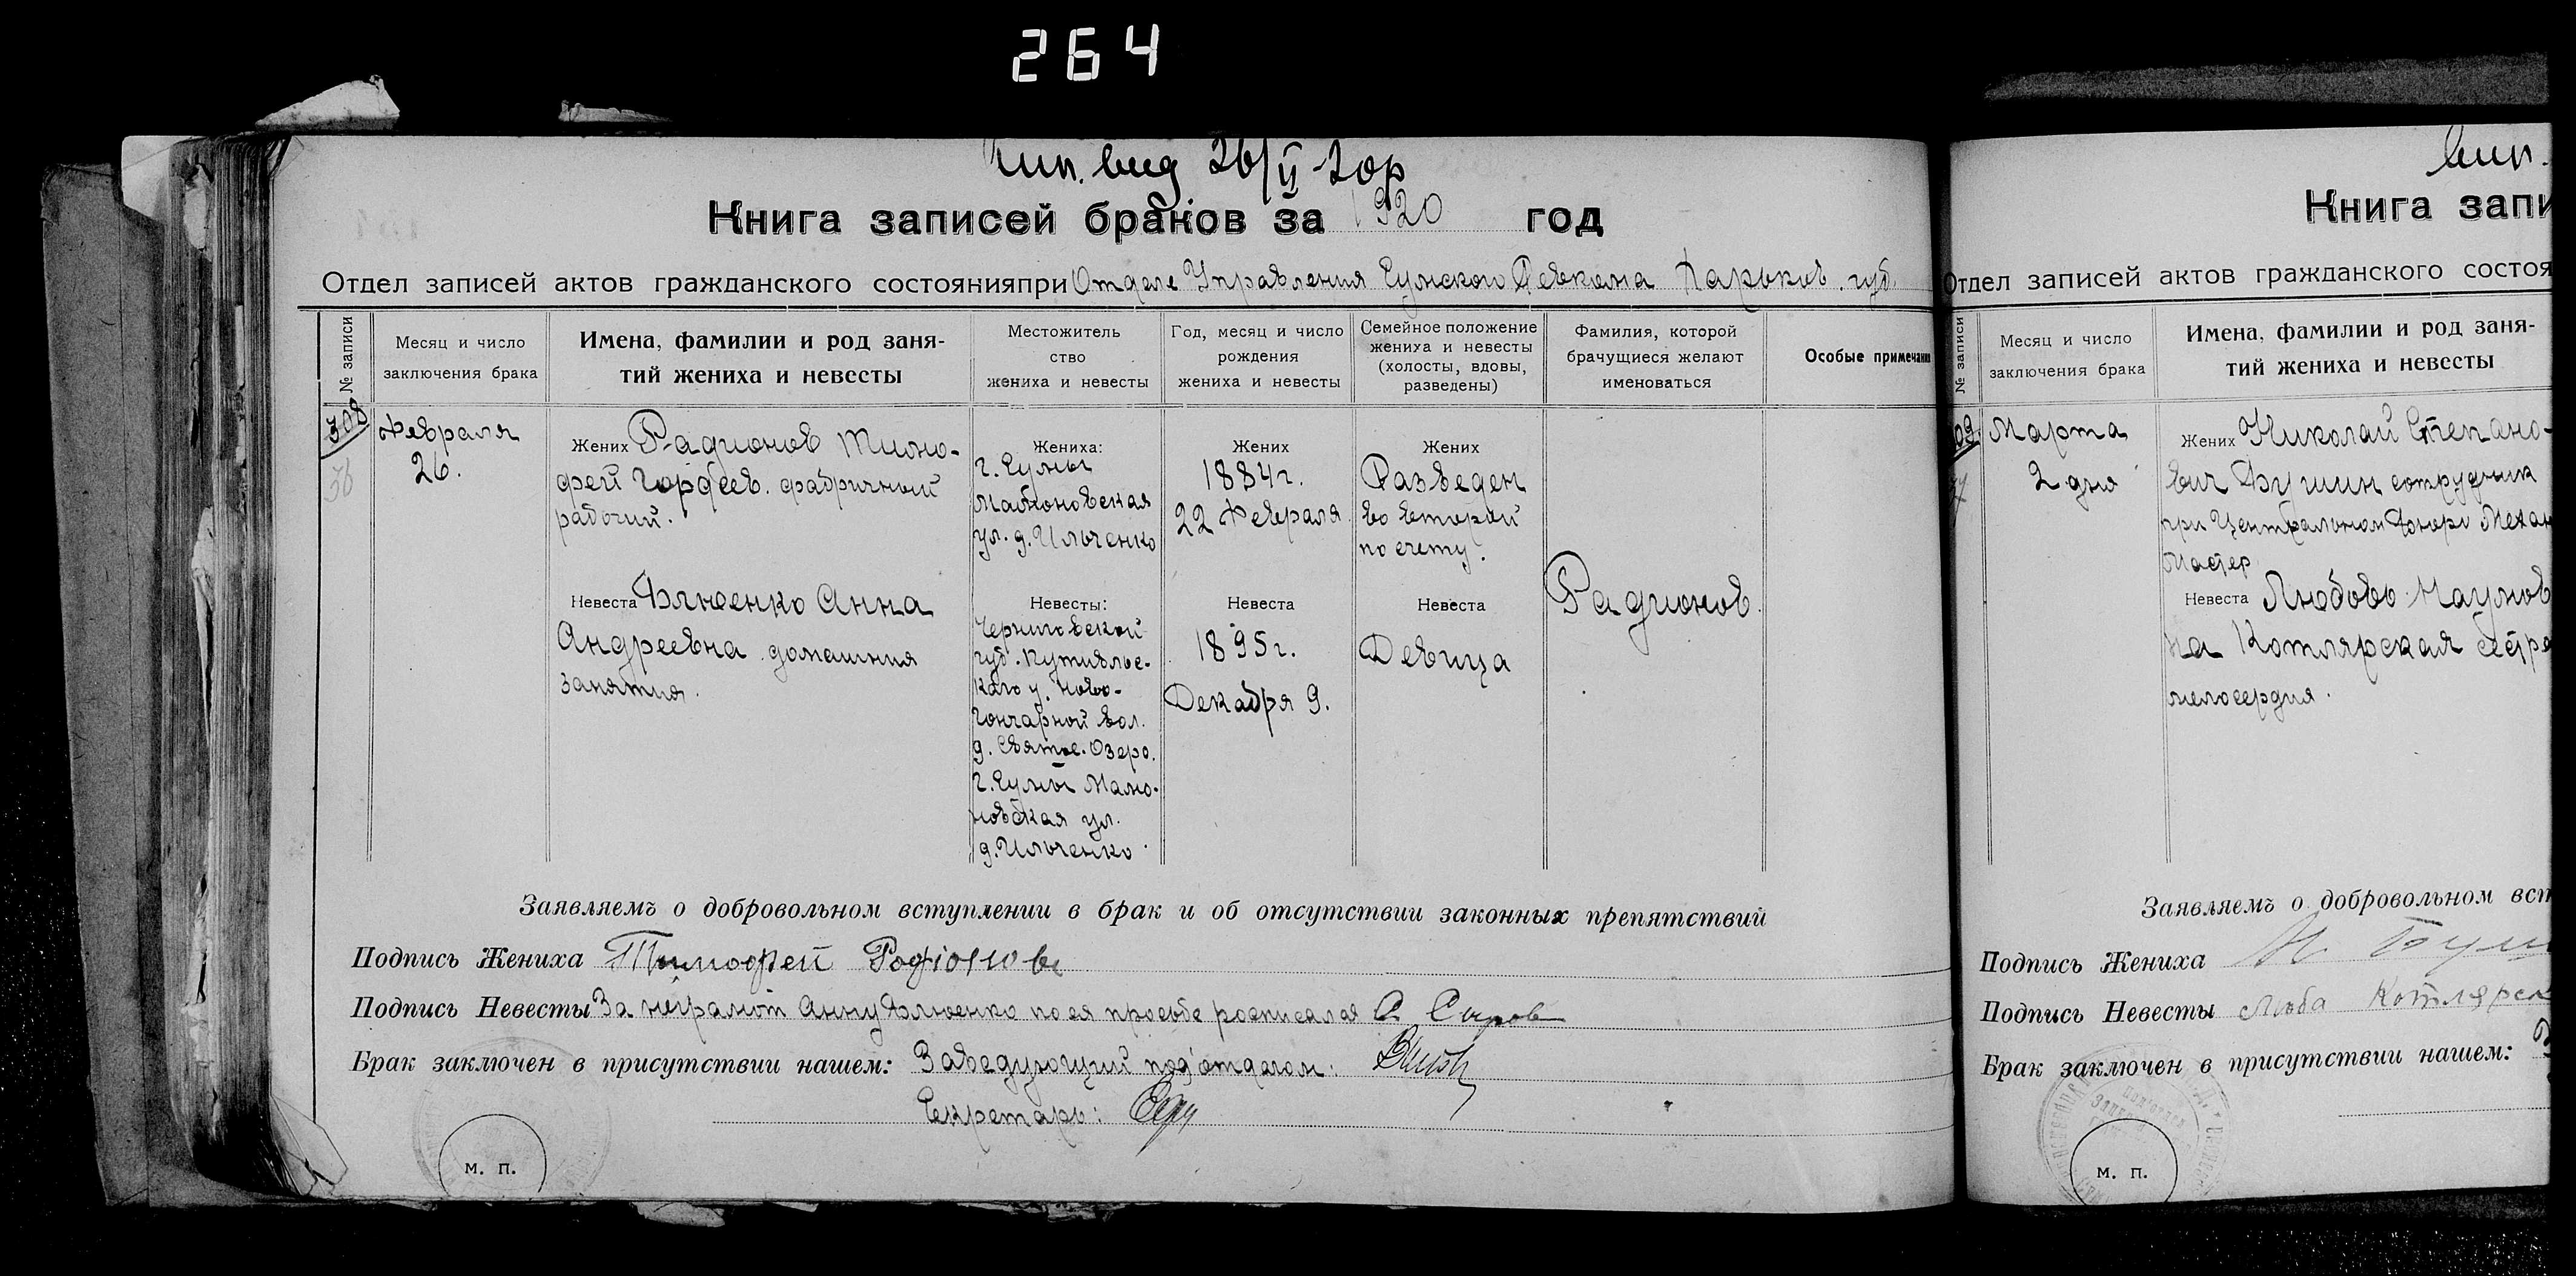 264
вид 26/II 20р
Книга записей браков за 1920 год
Отдел записей актов гражданского состояния при Отделе Управления Сумского Ревкома Харьков. губ.
№ записи
Месяц и число
заключения брака
Имена, фамилии и род заня-
тий жениха и невесты
Местожитель
ство
жениха и невесты
Год, месяц и число
рождения
жениха и невесты
Семейное положение
жениха и невесты
(холосты, вдовы,
разведены)
Фамилия, которой
брачущиеся желают
именоваться
Особые примечани
308
36
Февраля
26.
Жених Радионов Тимо-
фей Гордеев. фабричный
рабочий.
Жениха:
г. Сумы
ул. д. Ильченко
Жених
1884 г.
22 Февраля
Жених
Разведен
во второй
по счету.
Невеста Анна
Андреевна домашния
занятия.
Невесты:
Черниговской
губ. Путивльс-
каго у. Ново-
Гончарной вол.
д. Святое-Озеро.
г. Сумы
ул.
д. Ильченко
Невеста
1895 г.
Декабря 9.
Невеста
Девица
Радионов.
Заявляемъ о добровольном вступлении в брак и об отсутствии законных препятствий
Подпись Жениха Тимофей Родионовъ
Подпись Невесты За неграмот Анну по ея просьбе росписался С. Сыров
Брак заключен в присутствии нашем: Заведующий под'отделом:
Секретарь:
м. п.
Книга запи
Отдел записей актов гражданского состоя
№ записи
Месяц и число
заключения брака
Имена, фамилии и род заня-
тий жениха и невесты
09
Марта
2 дня
Жених Николай Степано-
вич сотрудник
при Центральном Механ
Мастер
Невеста Любовь Наумов
на Котлярская сестра
милосердия.
Заявляемъ о добровольном вст
Подпись Жениха Н.
Подпись Невесты Люба Котлярск
Брак заключен в присутствии нашем:
м. п.